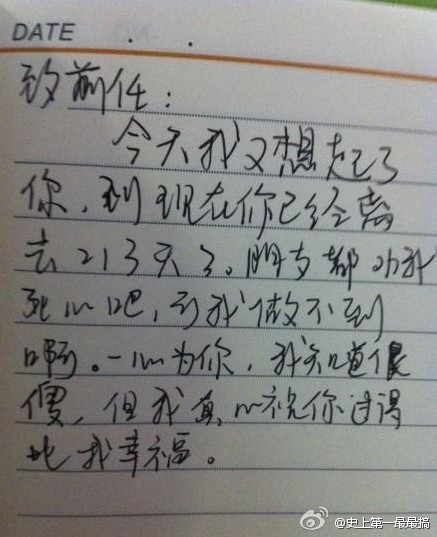 DATE . .
致前任：
今天我又想起了
你，到现在你已经离
去213天了。朋友都劝我
死心吧，可我做不到
啊。一心为你，我知道很
傻，但我真心祝你过得
比我幸福。
@史上第一最最搞